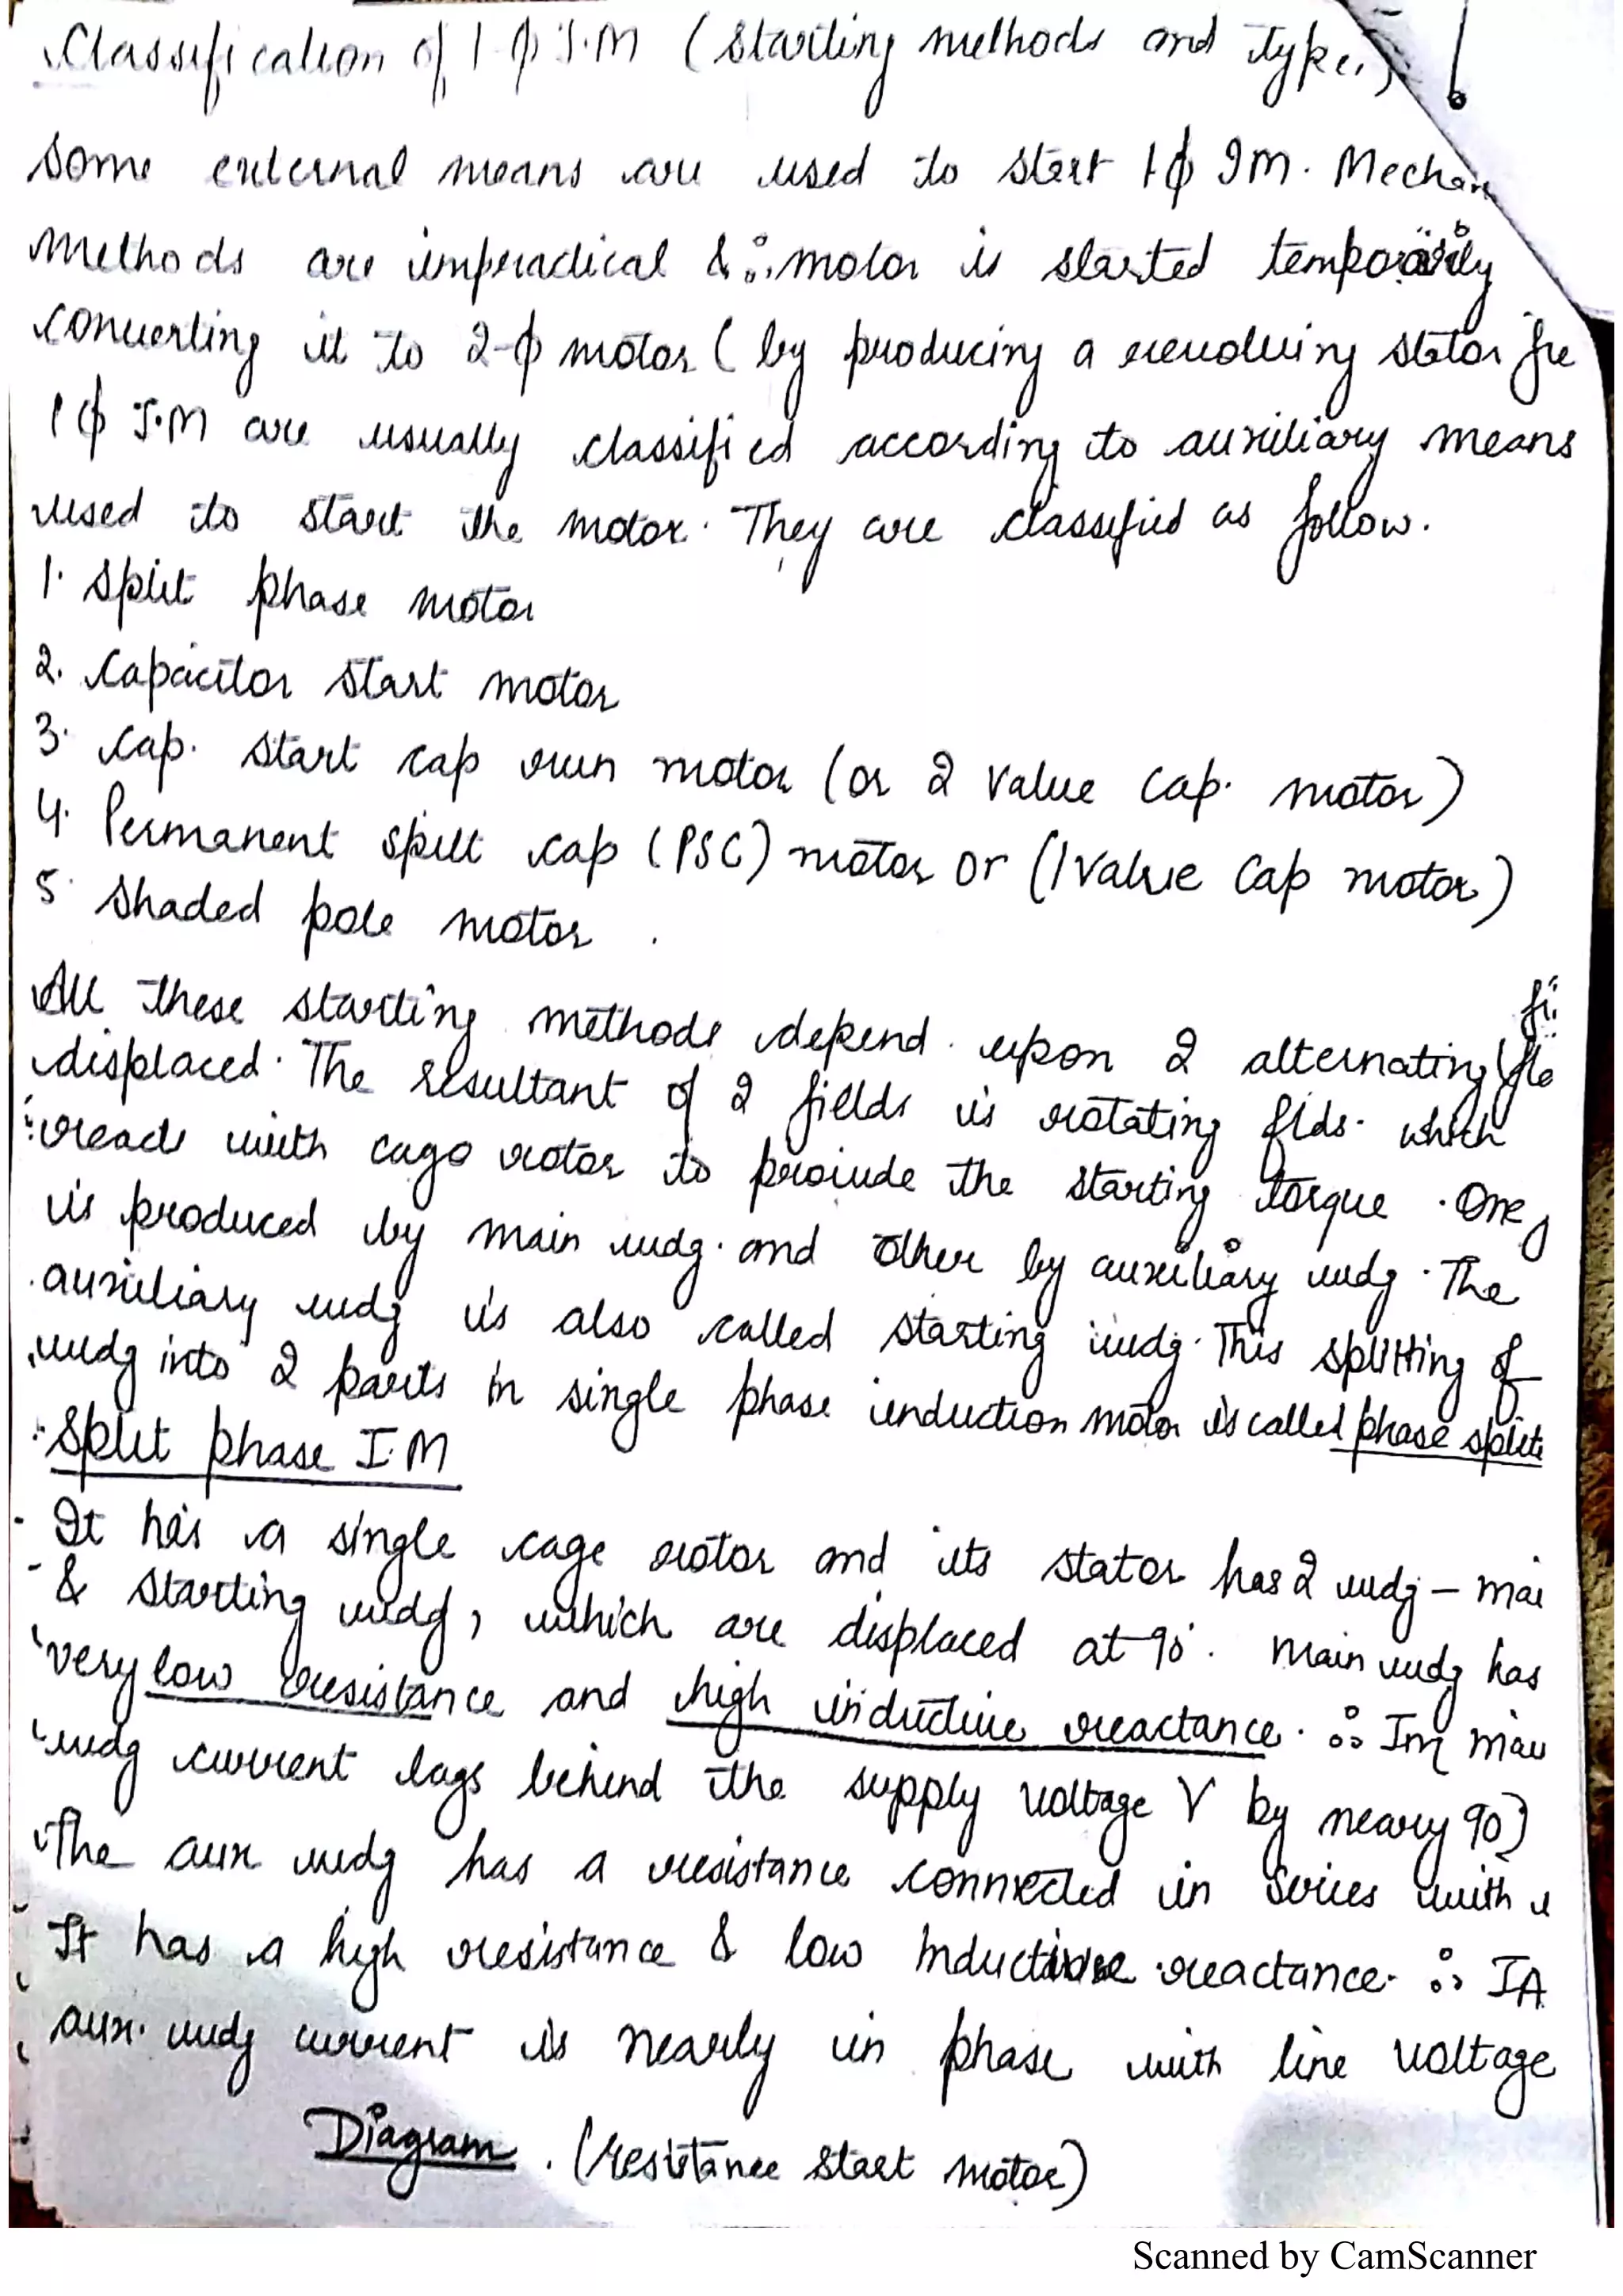 Classification of 1-ϕ I.M (Starting methods and types)
Some external means are used to start 1ϕ IM. Mechan
methods are impractical & ∴ motor is started temporarily
converting it to 2-ϕ motor (by producing a revolving stator
1ϕ I.M are usually classified according to auxiliary means
used to start the motor. They are classified as follow.
1. Split phase motor
2. Capacitor start motor
3. Cap. start cap run motor (or 2 value cap. motor)
4. Permanent split cap (PSC) motor or (1 value cap motor)
5. Shaded pole motor.
All these starting methods depend upon 2 alternating
displaced. The resultant of 2 fields is rotating flds. which
reacts with cage rotor to provide the starting torque. One
is produced by main wdg. and other by auxiliary wdg. The
auxiliary wdg is also called starting wdg. This splitting of
wdg into 2 parts in single phase induction motor is called phase split
Split phase I.M
It has a single cage rotor and its stator has 2 wdg - mai
& starting wdg, which are displaced at 90°. Main wdg has
very low resistance and high inductive reactance. ∴ Im mai
wdg current lags behind the supply voltage V by neary 90°
The aux wdg has a resistance connected in series with
It has a high resistance & low inductive reactance. ∴ IA
aux. wdg current is nearly in phase with line voltage
Diagram. (resistance start motor)
Scanned by CamScanner